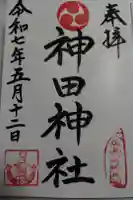 奉拝
神田神社
令和七年五月十二日